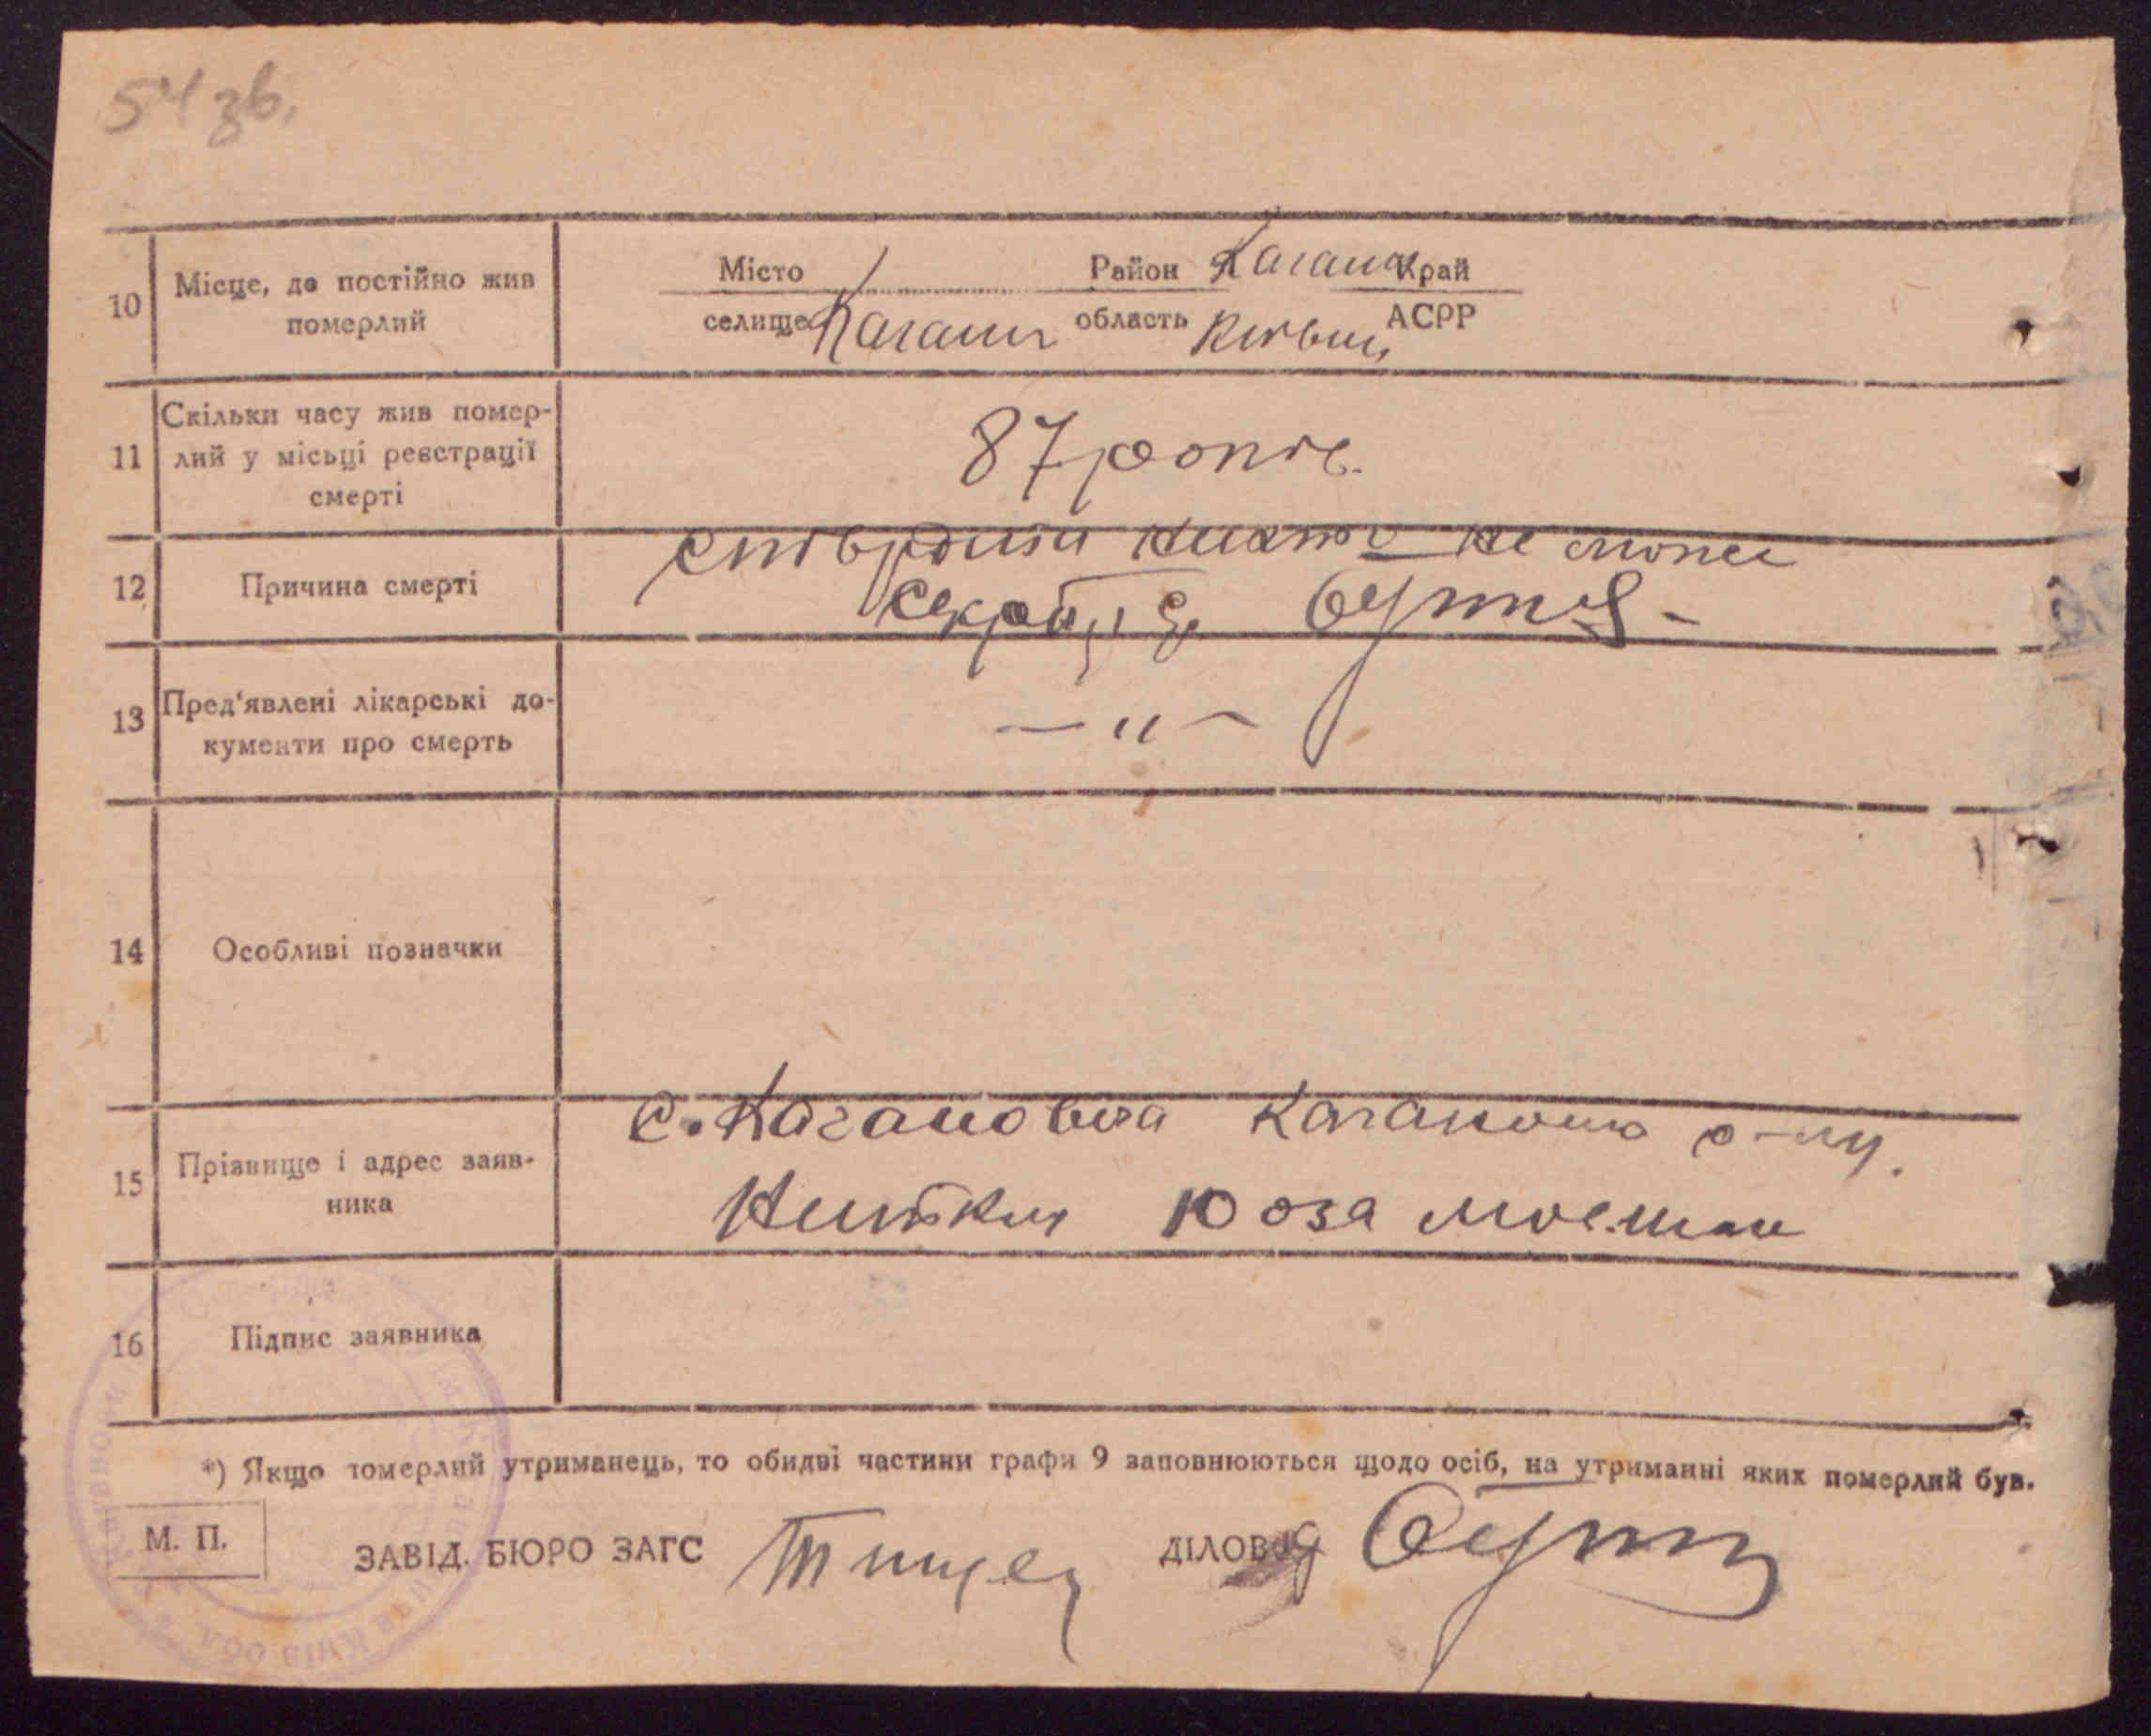 54 зв.
10 Місце, де постійно жив померлий
Місто Район Каган Край
селище Каган область Київськ АСРР
11 Скільки часу жив помер-
лий у місьці реєстрації
смерті
87 років.
12 Причина смерті
ствердити нихто не може
секрет с/р
13 Пред'явлені лікарські до-
кументи про смерть
— „ —
14 Особливі позначки
15 Прізвище і адрес заяв-
ника
с. Кагановича Кагановичо р-ну.
16 Підпис заявника
*) Якщо померлий утриманець, то обидві частини графи 9 заповнюються щодо осіб, на утриманні яких померлий був.
М. П.
ЗАВІД. БЮРО ЗАГС ДІЛОВОД